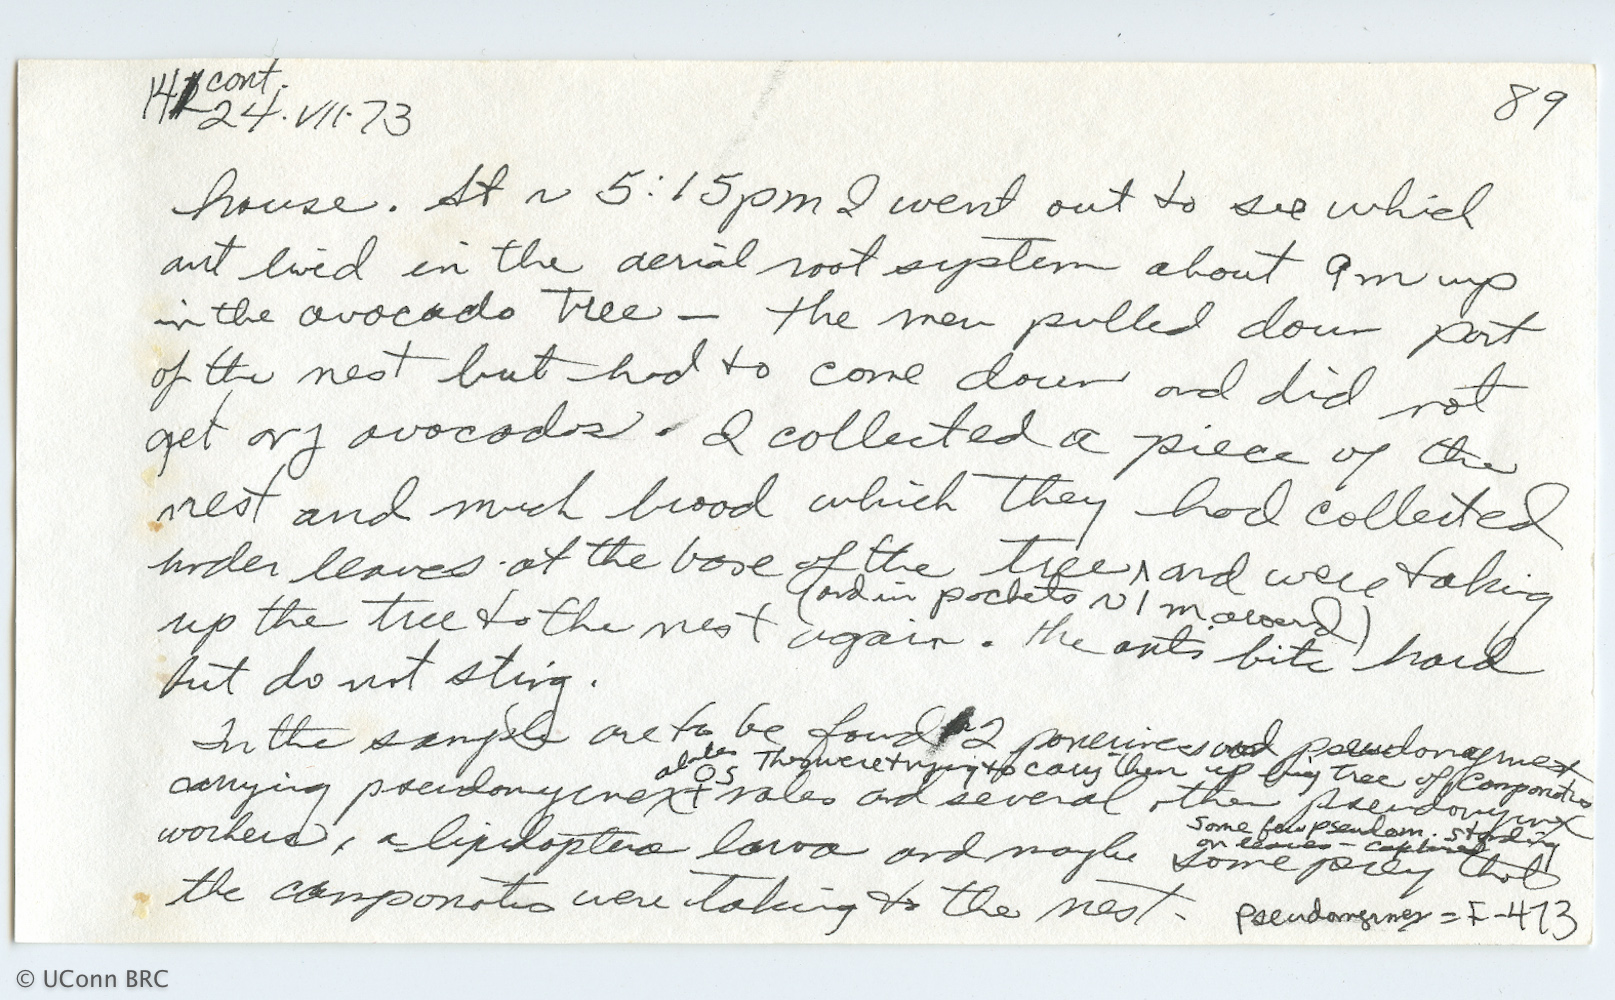 141 cont.
24.VII.73
89
house. At ~ 5:15pm I went out to see which
ant lived in the aerial root system about 9m up
in the avocado tree — the men pulled down part
of the nest but had to come down and did not
get any avocados. I collected a piece of the
nest and much brood which they had collected
under leaves at the base of the tree, and were taking
(and in pockets ~ 1 m around)
up the tree to the nest again. The ants bite hard
but do not sting.
In the sample are to be found 2 ponerines and pseudomyrmex
alates Os They were trying to carry them up big tree of Camponotus
carrying pseudomyrmex males and several other pseudomyrmex
some few pseudom. standing
on leaves — captured
workers, a lepidoptera larva and maybe some prey that
the camponotus were taking to the nest.
pseudomyrmex = F-473
© UConn BRC